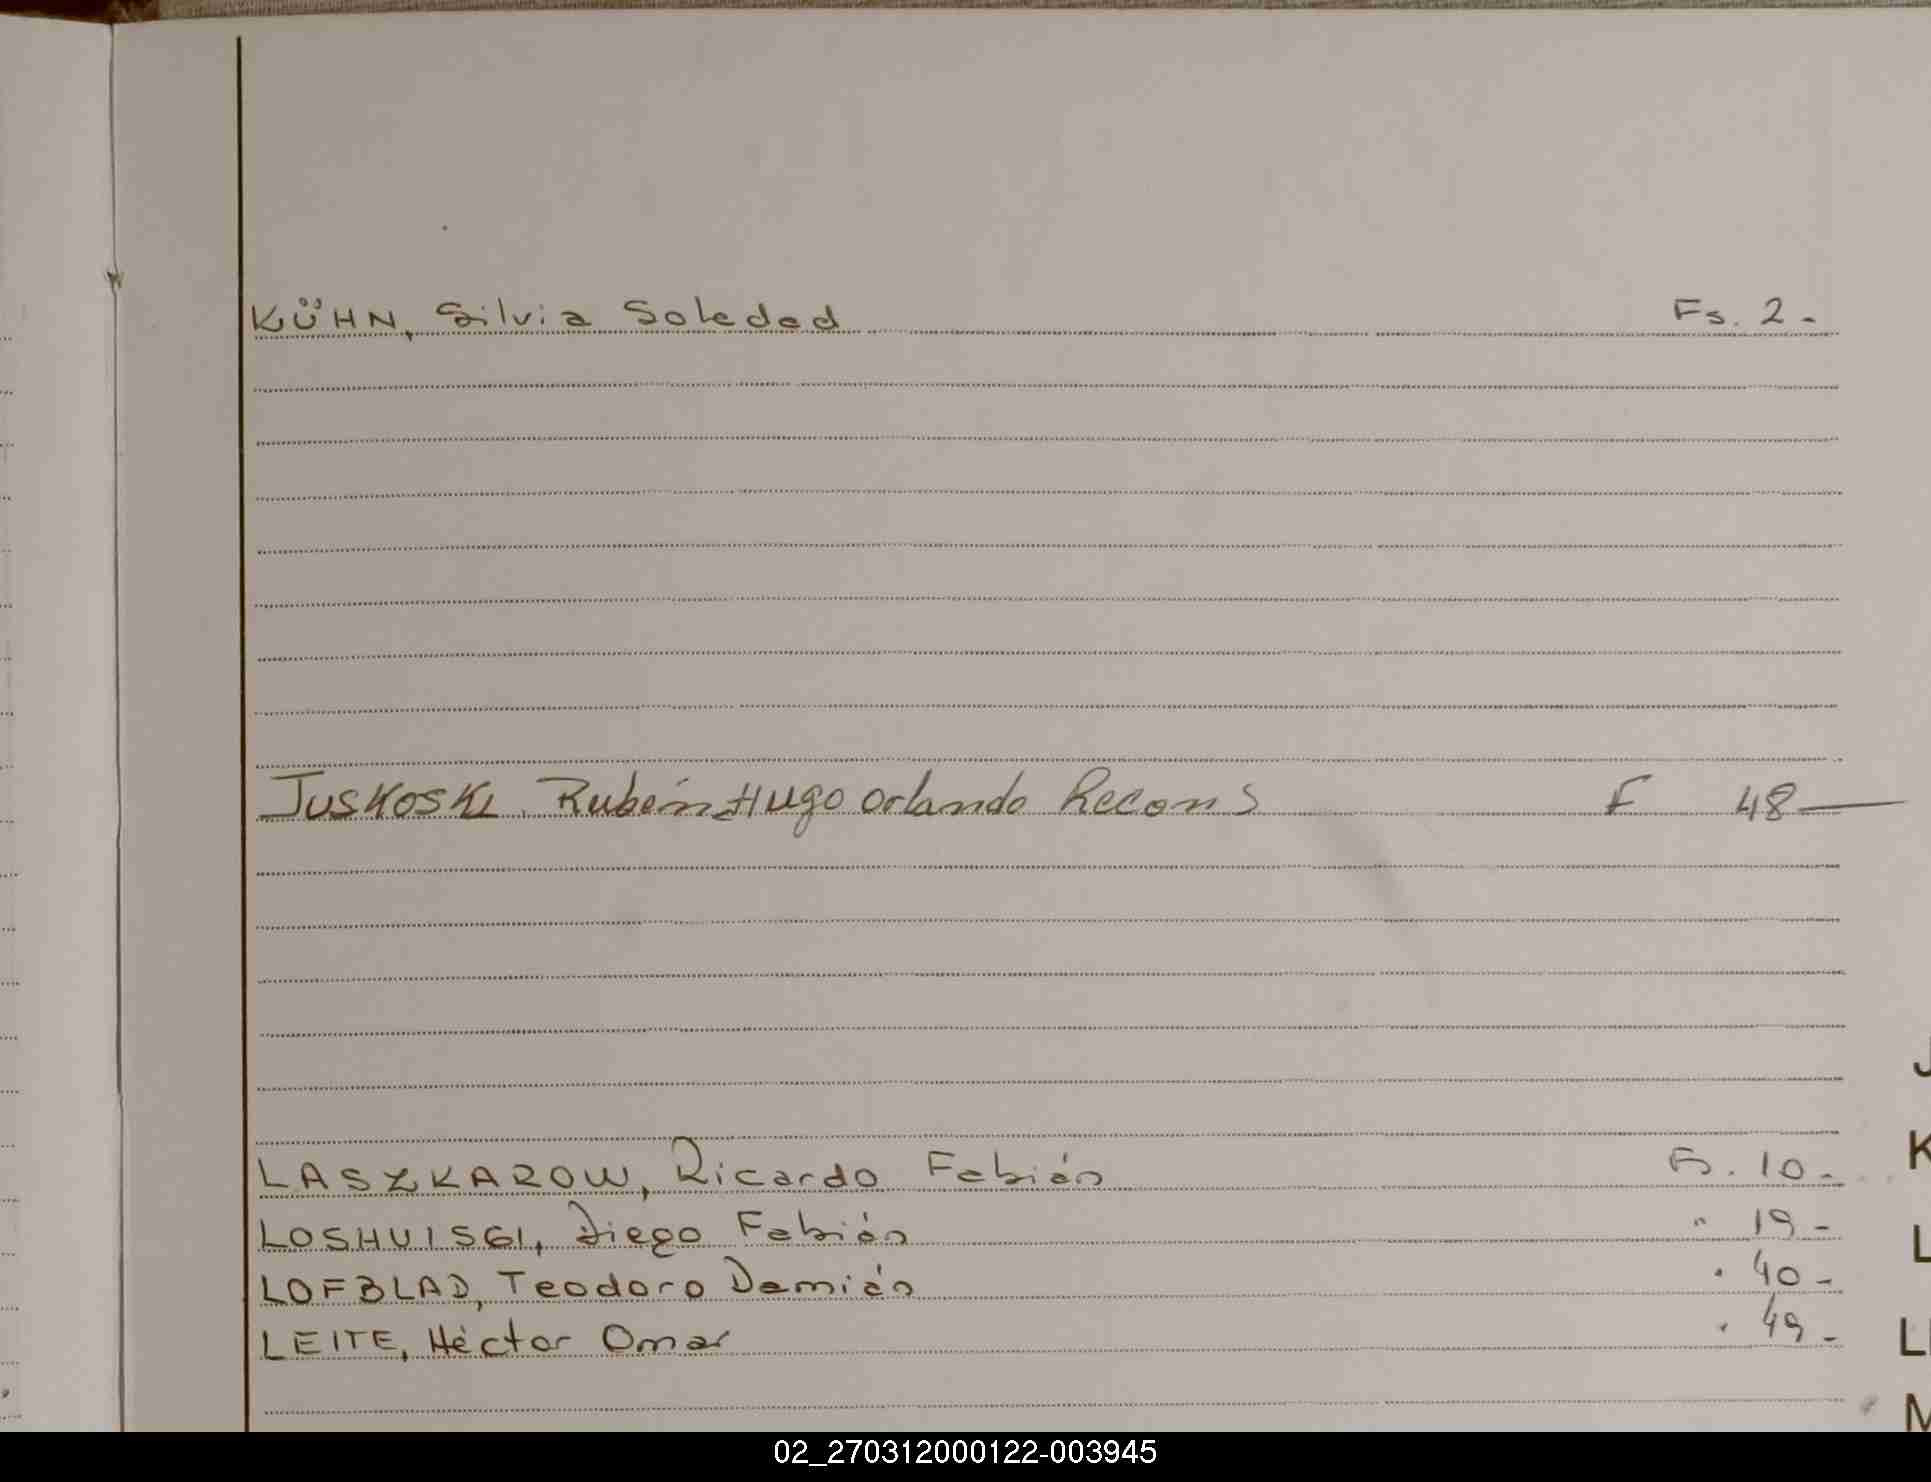 KÜHN, Silvia Soledad Fs. 2.-
JUSKOSKI. Rubén Hugo Orlando Recons F 48
J
LASZKAROW, Ricardo Fabián Fs. 10.-
K
LOSHUISGI, Diego Fabián " 19-
L
LOFBLAD, Teodoro Damián " 40-
LEITE, Héctor Omar " 49-
M
02_270312000122-003945